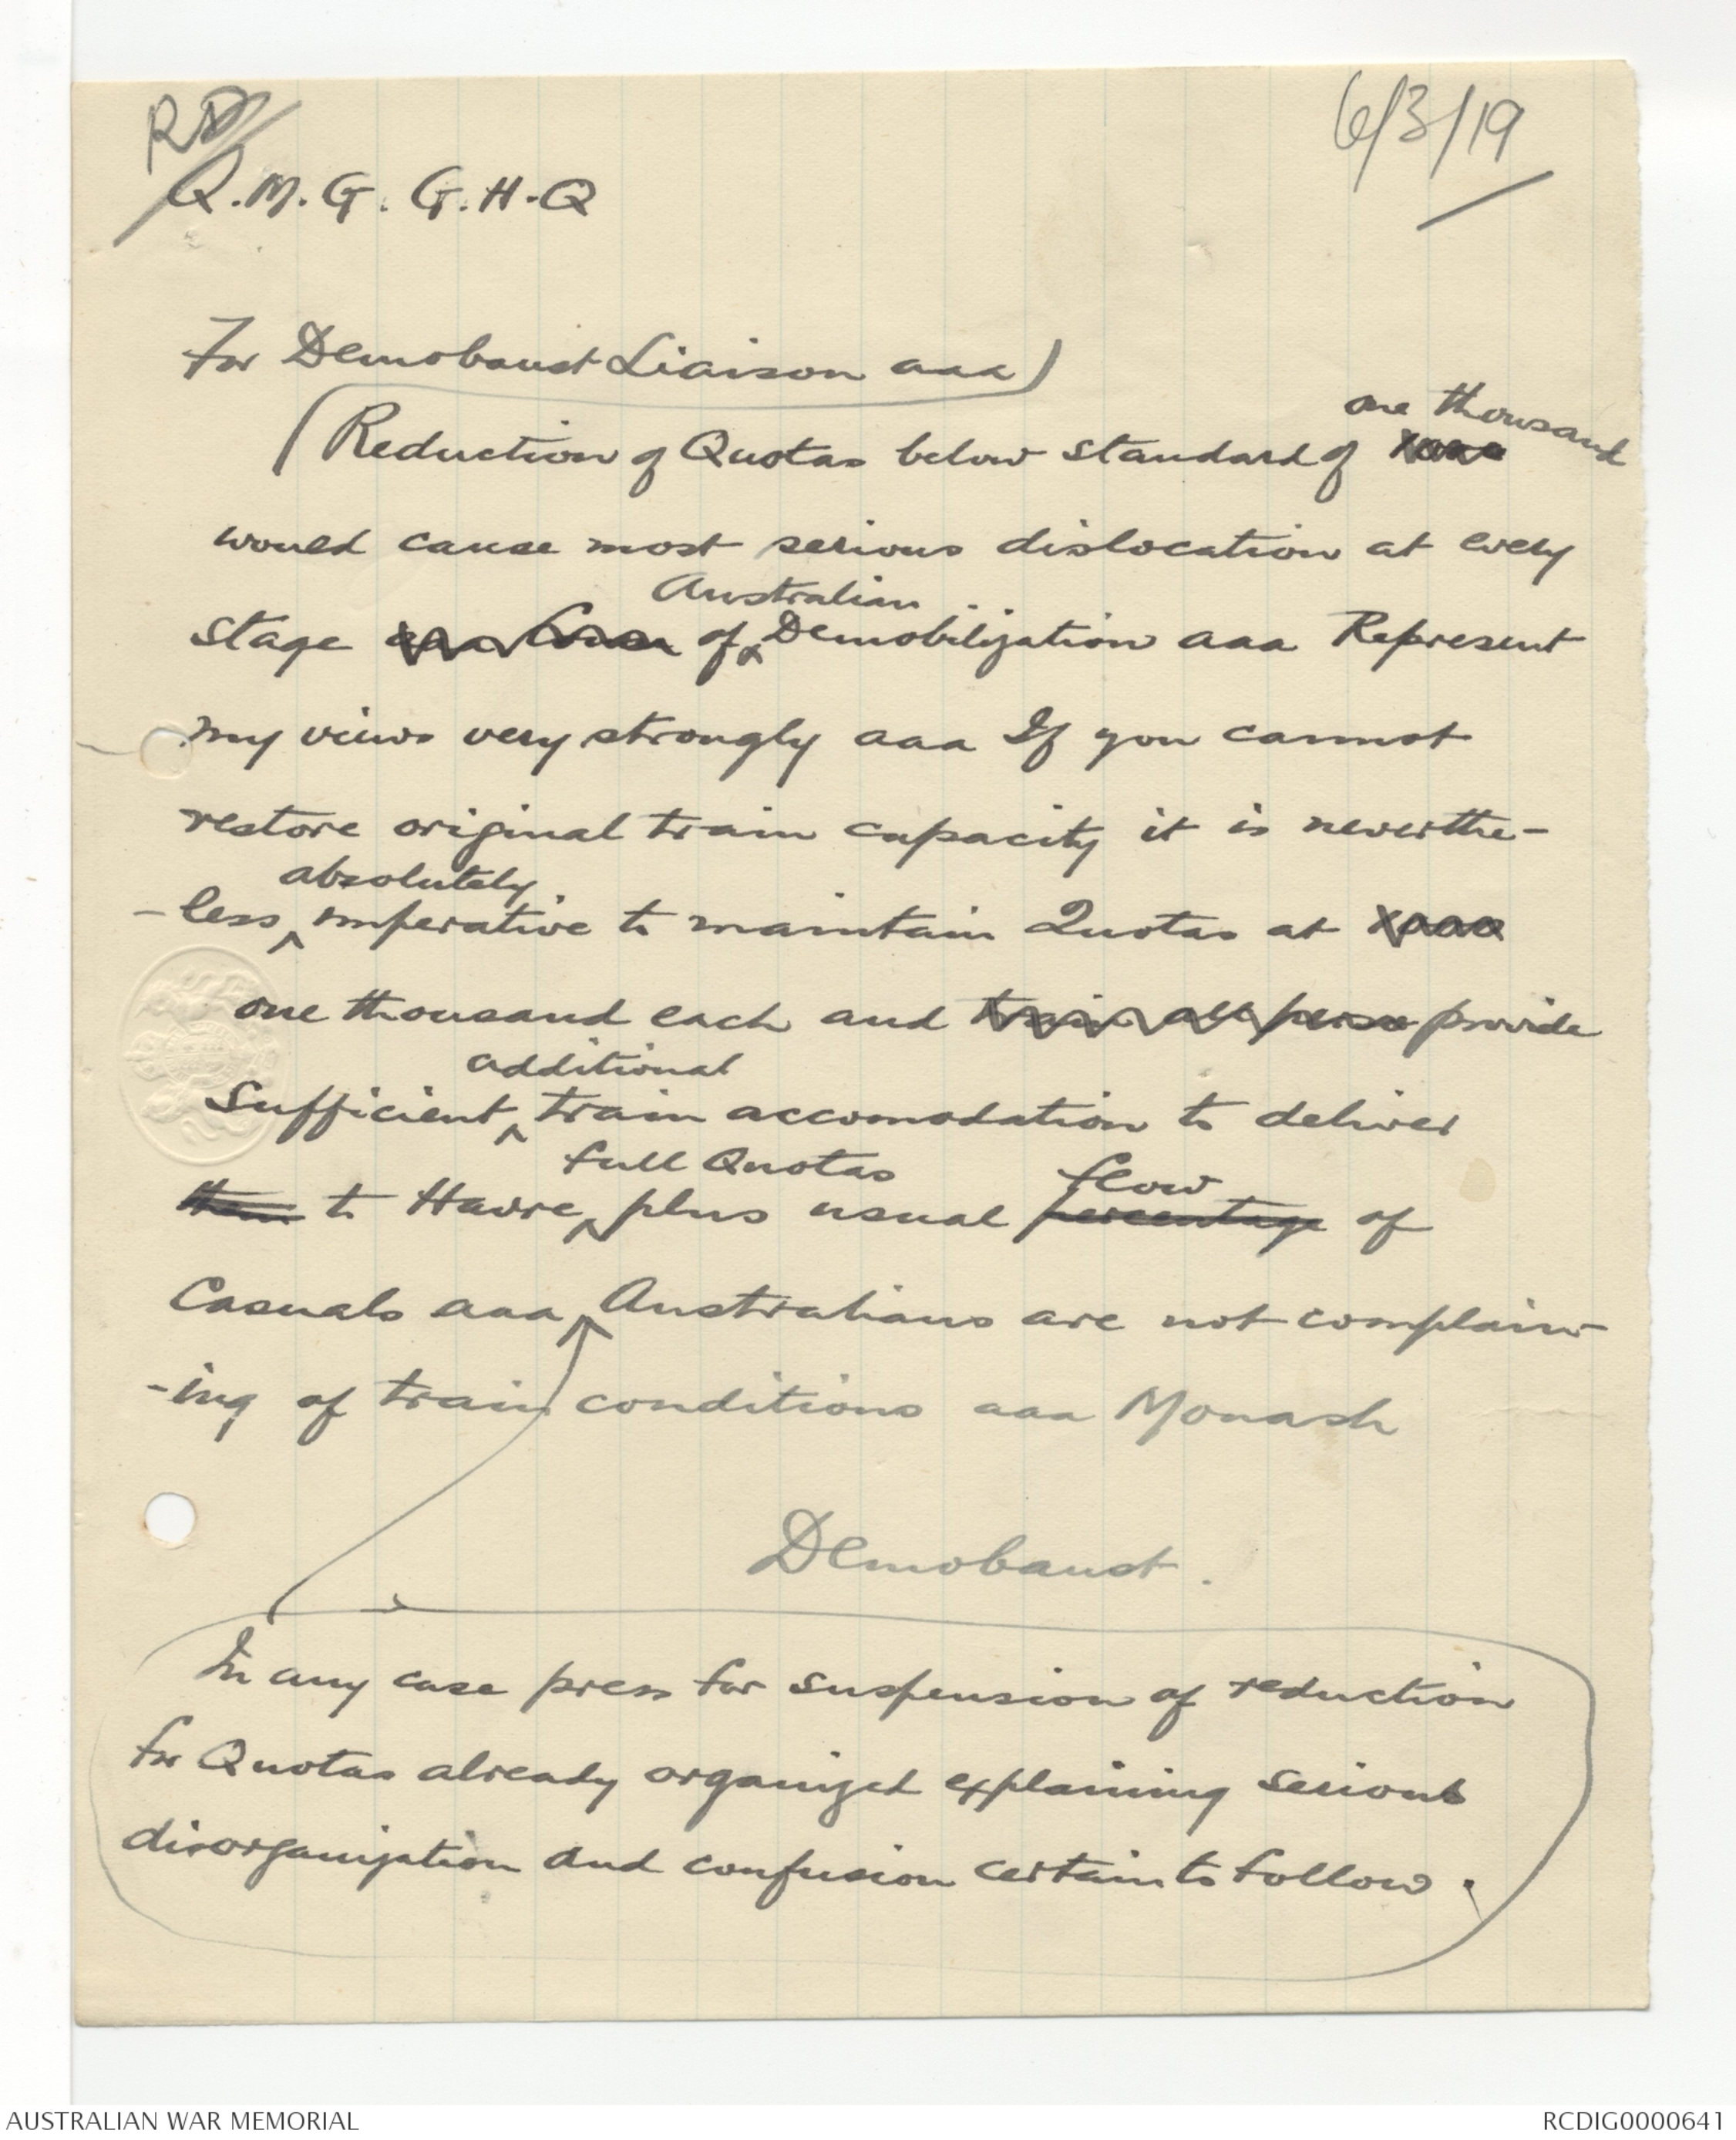 RD
6/3/19
Q.M.G. G.H.Q
For Demobaust Liaison aaa
one thousand
Reduction of Quotas below standard of 1000
would cause most serious dislocation at every
Australian
stage of Demobilization aaa Represent
my views very strongly aaa If you cannot
restore original train capacity it is neverthe-
absolutely
-less imperative to maintain Quotas at 1000
one thousand each and provide
additional
sufficient train accomodation to deliver
full Quotas flow
them to Havre plus usual percentage of
Casuals aaa Australians are not complain-
-ing of train conditions aaa Monash
Demobaust.
In any case press for suspension of reduction
for Quotas already organized explaining serious
disorganization and confusion certain to follow.
AUSTRALIAN WAR MEMORIAL
RCDIG0000641